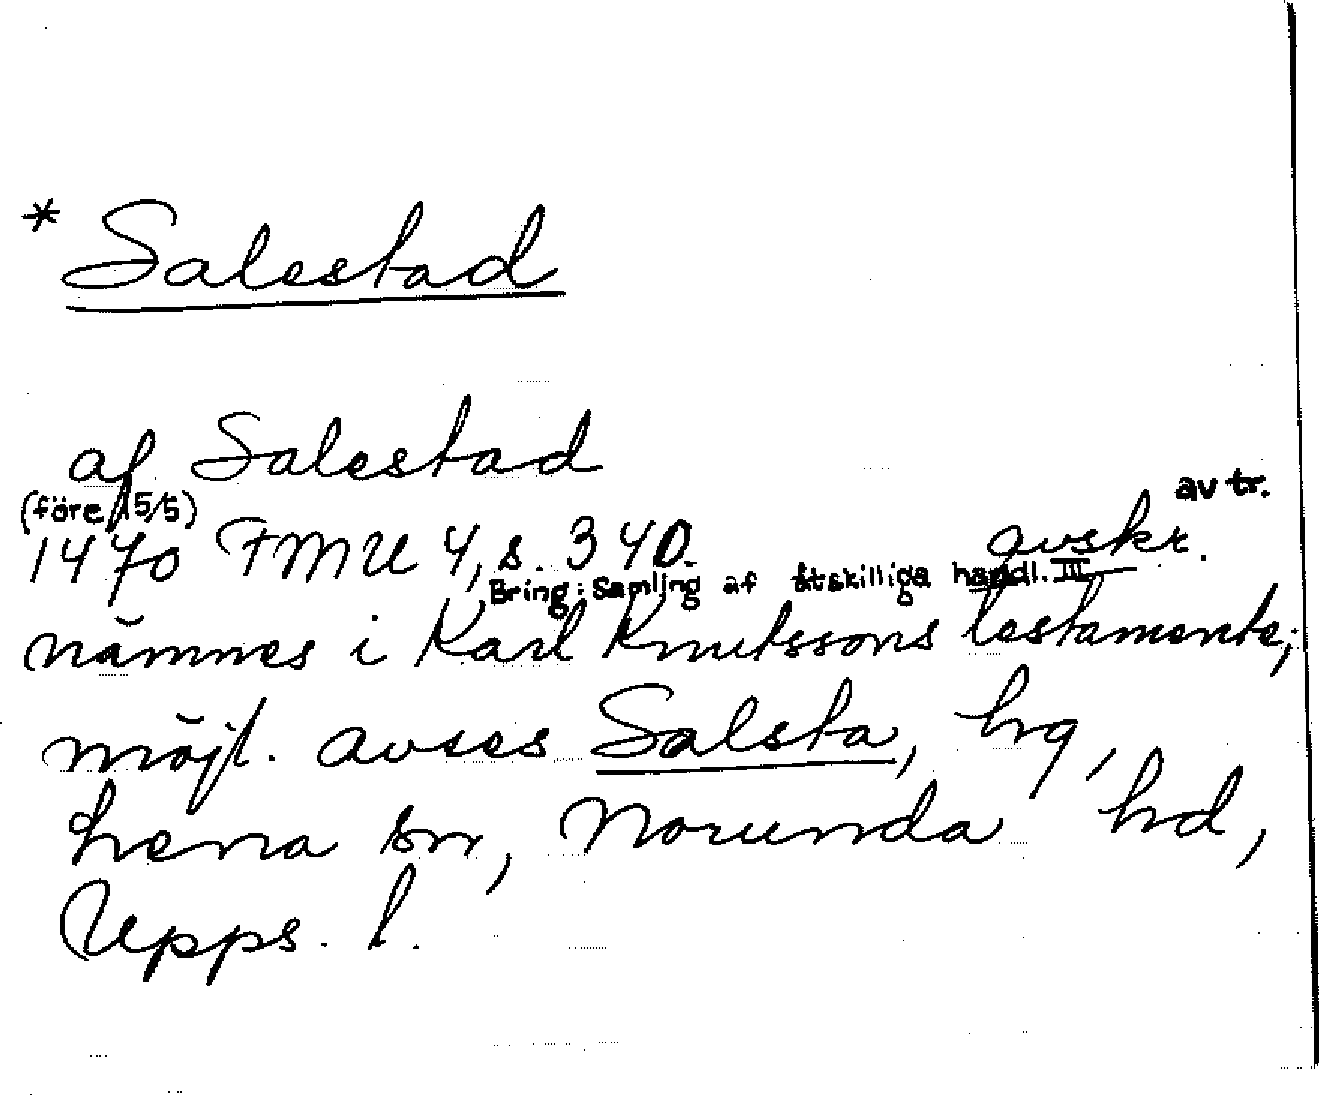 * Salestad
af Salestad
(före 15/5) av tr.
1470 FMU 4, s. 340. avskr.
Bring: Samling af åtskilliga handl. III
nämnes i Karl Knutssons testamente;
möjl. avses Salsta, hg,
Lena sn, Norunda hd,
Upps. l.